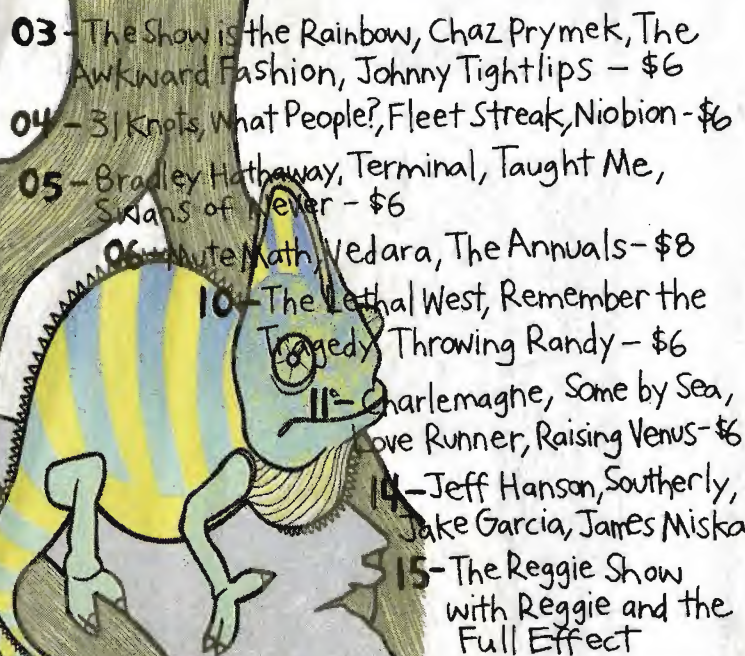 03 - The Show is the Rainbow, Chaz Prymek, The
Awkward Fashion, Johnny Tightlips - $6
04 - 31 Knots, What People?, Fleet Streak, Niobion - $6
05 - Bradley Hathaway, Terminal, Taught Me,
Swans of Never - $6
06 - Mute Math, Vedara, The Annuals - $8
10 - The Lethal West, Remember the
Tragedy, Throwing Randy - $6
11 - Charlemagne, Some by Sea,
Love Runner, Raising Venus - $6
14 - Jeff Hanson, Southerly,
Jake Garcia, James Miska
15 - The Reggie Show
with Reggie and the
Full Effect